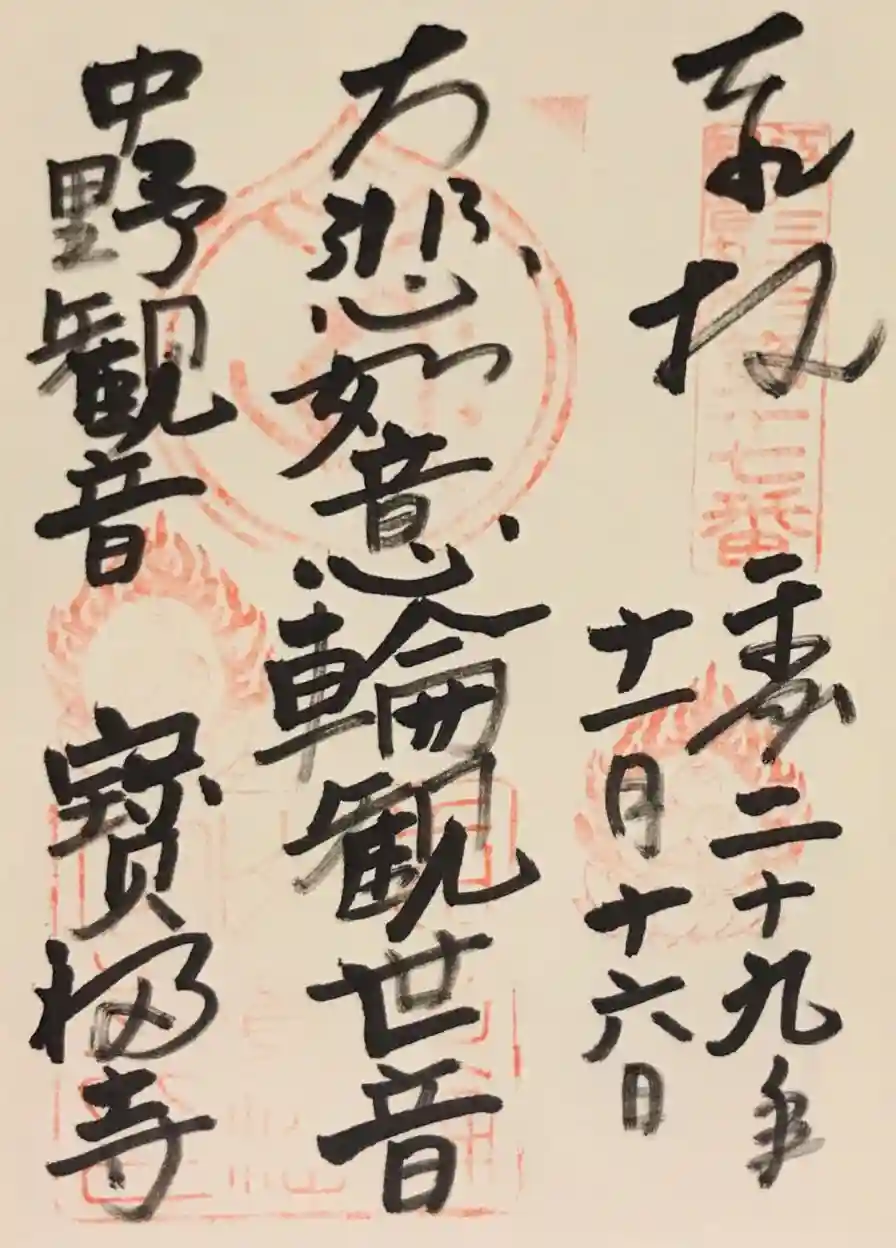 奉拝
平成二十九年
十一月十六日
大悲如意輪観世音
中野観音 寳福寺
七番